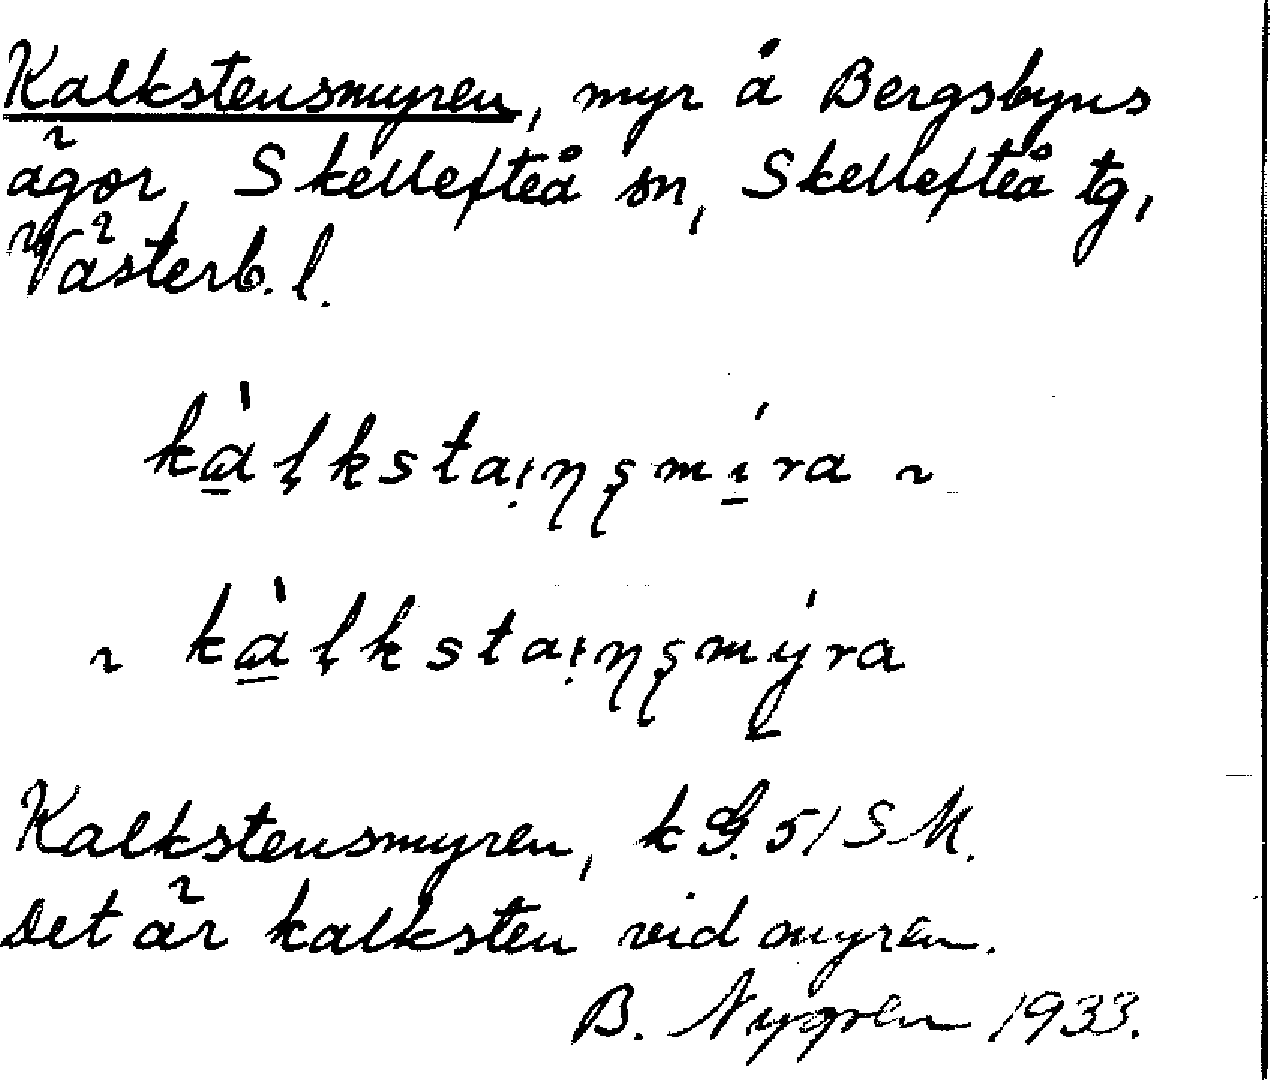 Kalkstensmyren, myr å Bergsbyns
ägor, Skellefteå sn, Skellefteå tg,
Västerb. l.
kàl̢kstai̩ŋşmíra ~
~ kàl̢kstai̩ŋşmýra
Kalkstensmyren, k G. 51 S M.
Det är kalksten vid myren.
B. Nygren 1933.